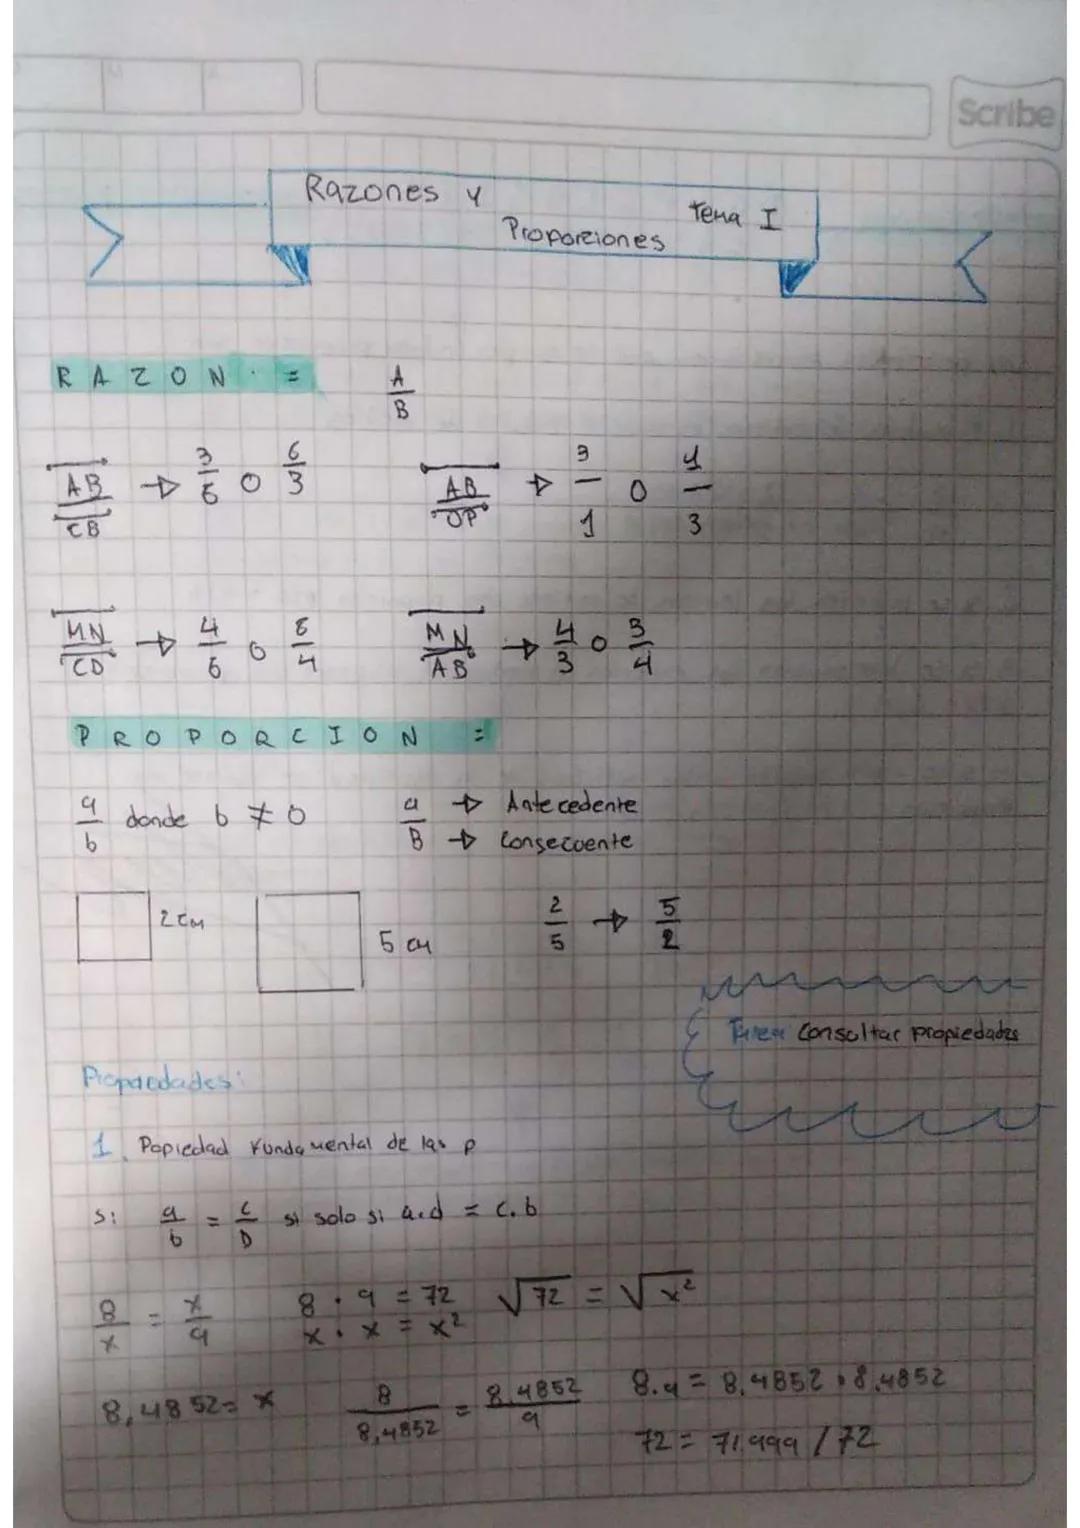 Scribe
Razones y
Proporciones
tema I
RAZON · = A/B
AB/CB → 3/6 o 6/3
AB/OP → 3/1 o 1/3
MN/CD → 4/6 o 6/4
MN/AB → 4/3 o 3/4
PROPORCION =
a/b donde b ≠ 0
a → Antecedente
B → Consecuente
2 cm
5 cm
2/5 → 5/2
Tarea Consultar propiedades
Propiedades:
1. Popiedad Fundamental de las p
Si a/b = c/D si solo si a.d = c.b
8/x = x/9
8 · 9 = 72
x · x = x²
√72 = √x²
8,4852 = x
8/8,4852 = 8,4852/9
8.9 = 8,4852 · 8,4852
72 = 71,999 / 72